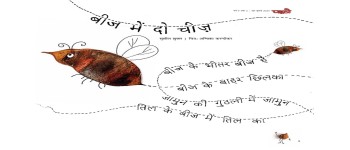 बीज में दो चीज़
बीज के भीतर बीज है
बीज के बाहर छिलका
जामुन की गुठली में जामुन
तिल के बीज में तिल का